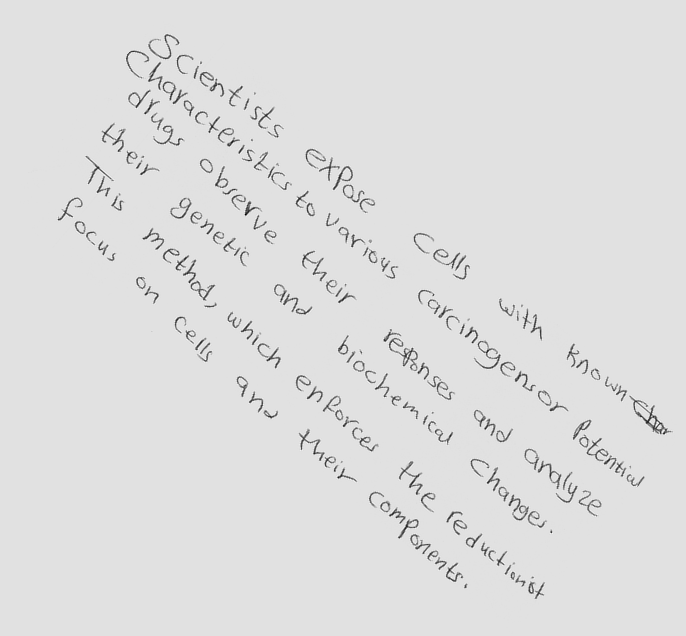 Scientists expose cells with known
Characteristics to various carcinogens or Potential
drugs observe their reponses and analyze
their genetic and biochemical Changes.
This method, which enforces the reductionist
focus on cells and their components.